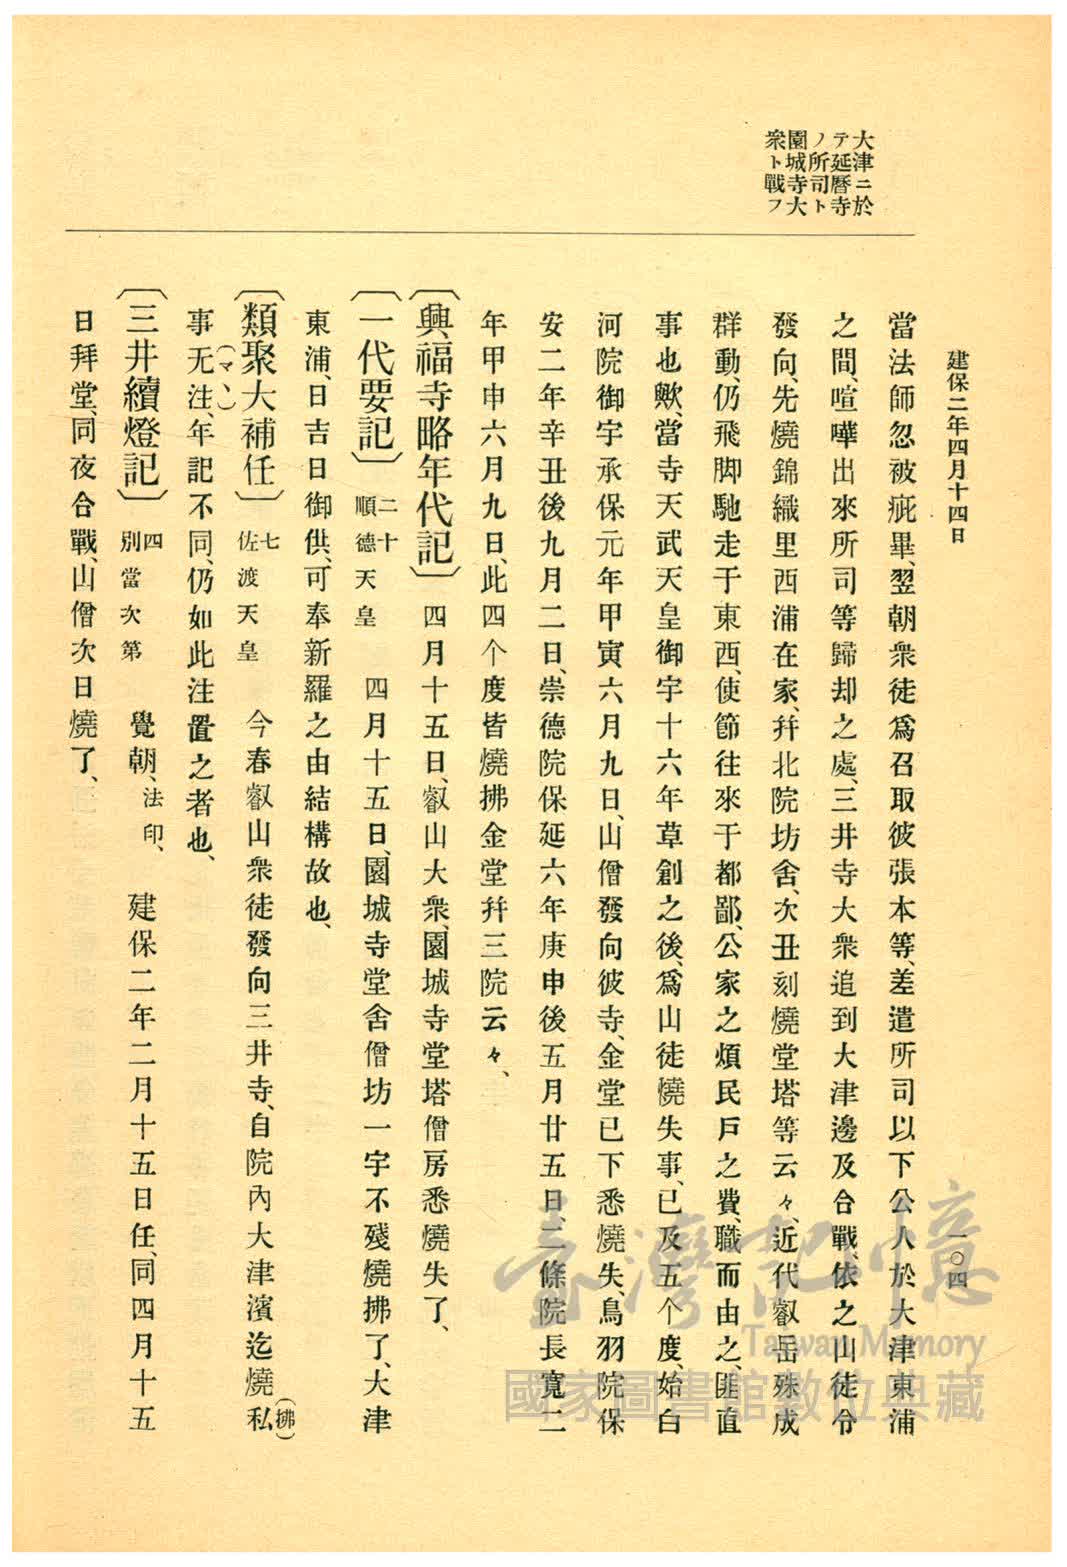 大津ニ於
テ延曆寺
ノ所司ト
園城寺大
衆ト戰フ
建保二年四月十四日
一〇四
當法師忽被疵畢、翌朝衆徒爲召取彼張本等、差遣所司以下公人於大津東浦
之間、喧嘩出來所司等歸却之處、三井寺大衆追到大津邊及合戰、依之山徒令
發向、先燒錦織里西浦在家、幷北院坊舍、次丑刻燒堂塔等云々、近代叡岳殊成
群動、仍飛脚馳走于東西、使節往來于都鄙、公家之煩民戶之費、職而由之、匪直
事也歟、當寺天武天皇御宇十六年草創之後、爲山徒燒失事、已及五个度、始白
河院御宇承保元年甲寅六月九日、山僧發向彼寺、金堂已下悉燒失、鳥羽院保
安二年辛丑後九月二日、崇德院保延六年庚申後五月廿五日、二條院長寬二
年甲申六月九日、此四个度皆燒拂金堂幷三院云々、
〔興福寺略年代記〕 四月十五日、叡山大衆、園城寺堂塔僧房悉燒失了、
〔一代要記〕 二十 順德天皇 四月十五日、園城寺堂舍僧坊一宇不殘燒拂了、大津
東浦、日吉日御供、可奉新羅之由結構故也、
〔類聚大補任〕 七 佐渡天皇 今春叡山衆徒發向三井寺、自院內大津濱迄燒私(拂)
事无注、(マヽ)年記不同、仍如此注置之者也、
〔三井續燈記〕 四 別當次第 覺朝、法印、 建保二年二月十五日任、同四月十五
日拜堂、同夜合戰、山僧次日燒了、
臺灣記憶
Taiwan Memory
國家圖書館數位典藏